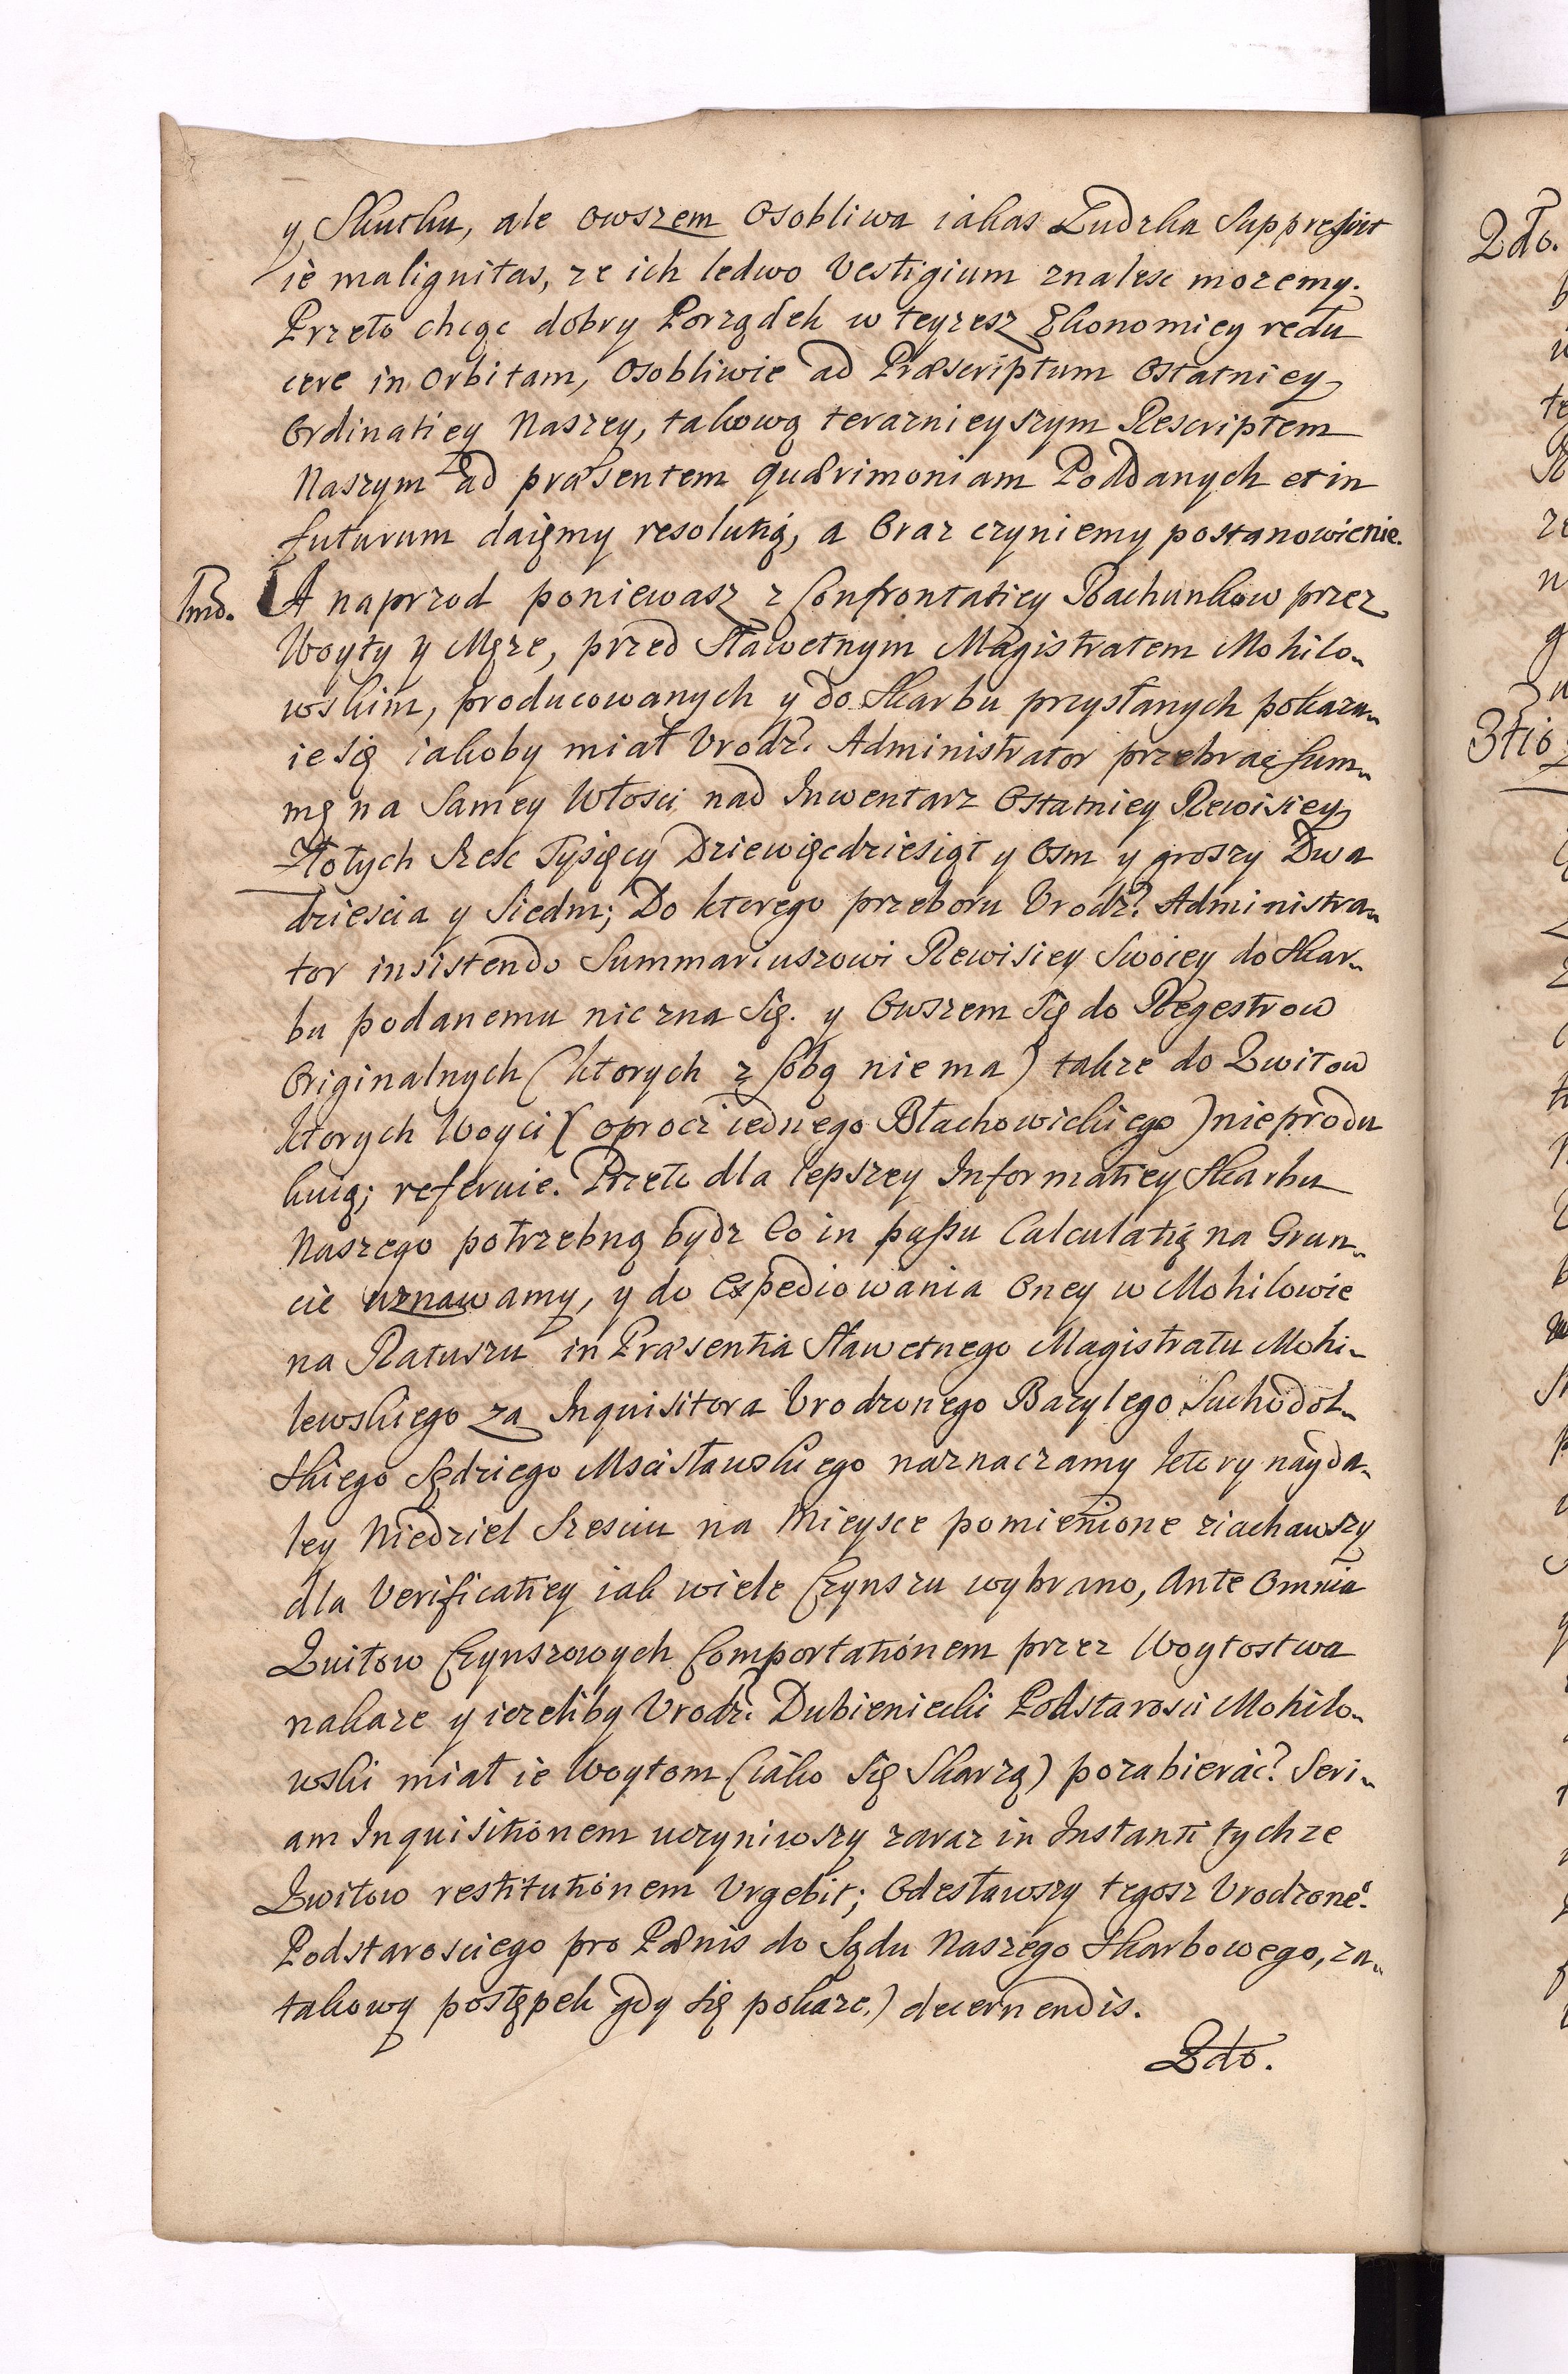 y Skutku, ale owszem Osobliwa iakas Ludzka Suppressit
ie malignitas, ze ich ledwo Vestigium znalesc mozemy.
Przeto chcąc dobry Porządek w teyzesz Ekonomiey redu
cere in Orbitam, Osobliwie ad Præscriptum Ostatniey
Ordinatiey Naszey, takową terazniey szym Rescriptem
Naszym ad præsentem quærimoniam Poddanych et in
futurum daięmy resolutią, a Oraz czyniemy postanowienie.
Imo. A naprzod poniewasz z Confrontatiey Rachunkow przez
Woyty y Męze, przed Sławetnym Magistratem Mohilo-
wskim, producowanych y do Skarbu przysłanych pokazu-
ie się iakoby miał Vrodz. Administrator przebrac Sum-
mę na Samey Włosci nad Inwentarz Ostatniey Rewisiey
Złotych Szesc Tysięcy Dziewięcdziesiąt y Osm y groszy Dwa
dziescia y Siedm; Do ktorego przeboru Vrodz. Administra-
tor insistendo Summariuszowi Rewisiey Swoiey do Skar-
bu podanemu nie zna Się. y Owszem Się do Regestrow
Originalnych (ktorych z sobą nie ma) takze do Kwitow
ktorych Woyci (oprocz iednego Błachowickiego) nieprodu
kuią; referuie. Przeto dla lepszey Informatiey Skarbu
Naszego potrzebną bydz Eo in passu Calculatią na Grun-
cie uznawamy, y do Expediowania Oney w Mohilowie
na Ratuszu in Præsentia Sławetnego Magistratu Mohi-
lewskiego za Inquisitora Vrodzonego Bazylego Suchodol-
skiego Sędziego Mscisławskiego naznaczamy ktory nayda-
ley Niedziel Szesciu na Mieysce pomienione ziachawszy
dla Verificatiey iak wiele Czynszu wybrano, Ante Omnia
Kwitow Czynszowych Comportationem przez Woytostwa
nakaze y iezeliby Vrodz. Dubieniecki Podstarosci Mohilo-
wski miał ie Woytom (iako Się Skarzą) pozabierac? Seri-
am Inquisitionem uczyniwszy zaraz in Instanti tychze
Kwitow restitutionem Vrgebit; Odesławszy tegosz Vrodzone°.
Podstarosciego pro Pœnis do Sądu Naszego Skarbowego, za-
takowy postępek gdy się pokaze,) decernendis.
2do.
2do.
3tio